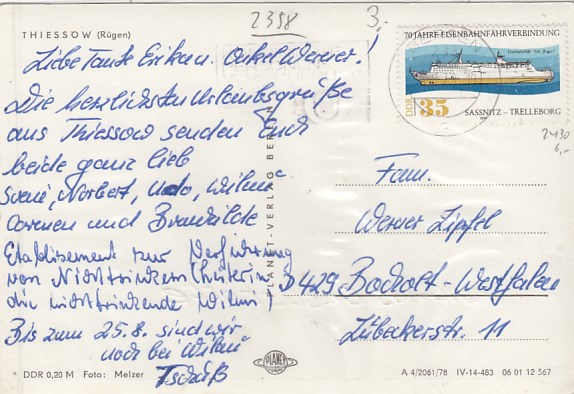 2398
3.
THIESSOW (Rügen)
70 JAHRE EISENBAHNFÄHRVERBINDUNG
DDR 35
SASSNITZ – TRELLEBORG
2430
6,-
Liebe Tante Erika u. Onkel Werner!
Die herzlichsten Urlaubsgrüße
aus Thiessow senden Euch
beide ganz lieb
Norbert, Udo,
Carmen und
Etablissement zur Verführung
von Nichttrinkern
die nichttrinkende
Bis zum 25.8. sind wir
noch bei
Tschüß
PLANET-VERLAG BERLIN
Fam.
Werner Zipfel
D 429 Bocholt-Westfalen
Lübeckerstr. 11
PLANET
DDR 0,20 M Foto: Melzer
A 4/2061/78 IV-14-483 06 01 12 567